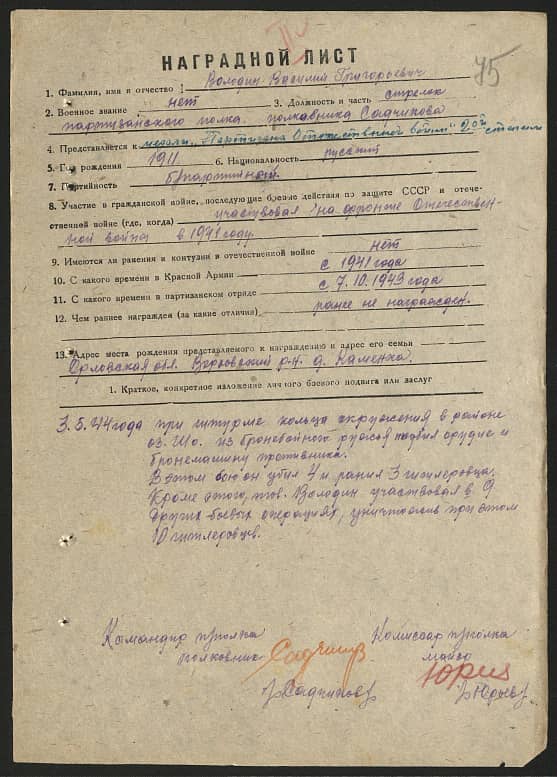 II
75
НАГРАДНОЙ ЛИСТ
1. Фамилия, имя и отчество Володин Василий Григорьевич
2. Военное звание нет 3. Должность и часть стрелок
партизанского полка полковника Садчикова
4. Представляется к медали „Партизана Отечественной войны" 2ой степени
5. Год рождения 1911 6. Национальность русский
7. Партийность б/партийный
8. Участие в гражданской войне, последующие боевые действия по защите СССР и отече-
ственной войне (где, когда) участвовал на фронте Отечествен-
ной войны в 1941 году
9. Имеются ли ранения и контузии в отечественной войне нет
10. С какого времени в Красной Армии с 1941 года
11. С какого времени в партизанском отряде с 7.10.1943 года
12. Чем ранее награжден (за какие отличия) ранее не награжден.
13. Адрес места рождения представляемого к награждению и адрес его семьи
Орловская обл. Верховский р-н д. Каменка.
1. Краткое, конкретное изложение личного боевого подвига или заслуг
3.5.44 года при штурме кольца окружения в районе
оз. Шо. из бронебойного ружья подбил орудие и
бронемашину противника.
В этом бою он убил 4 и ранил 3 гитлеровца.
Кроме этого, тов. Володин участвовал в 9
других боевых операциях, уничтожив при этом
10 гитлеровцев.
Командир п/полка Комиссар п/полка
полковник Садчиков майор
/Садчиков/ /Юрьев/